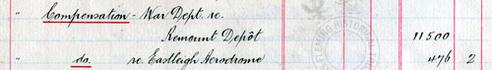 " Compensation - War Dept. re.
Remount Depôt 11500
" do. re. Eastleigh Aerodrome 476 2